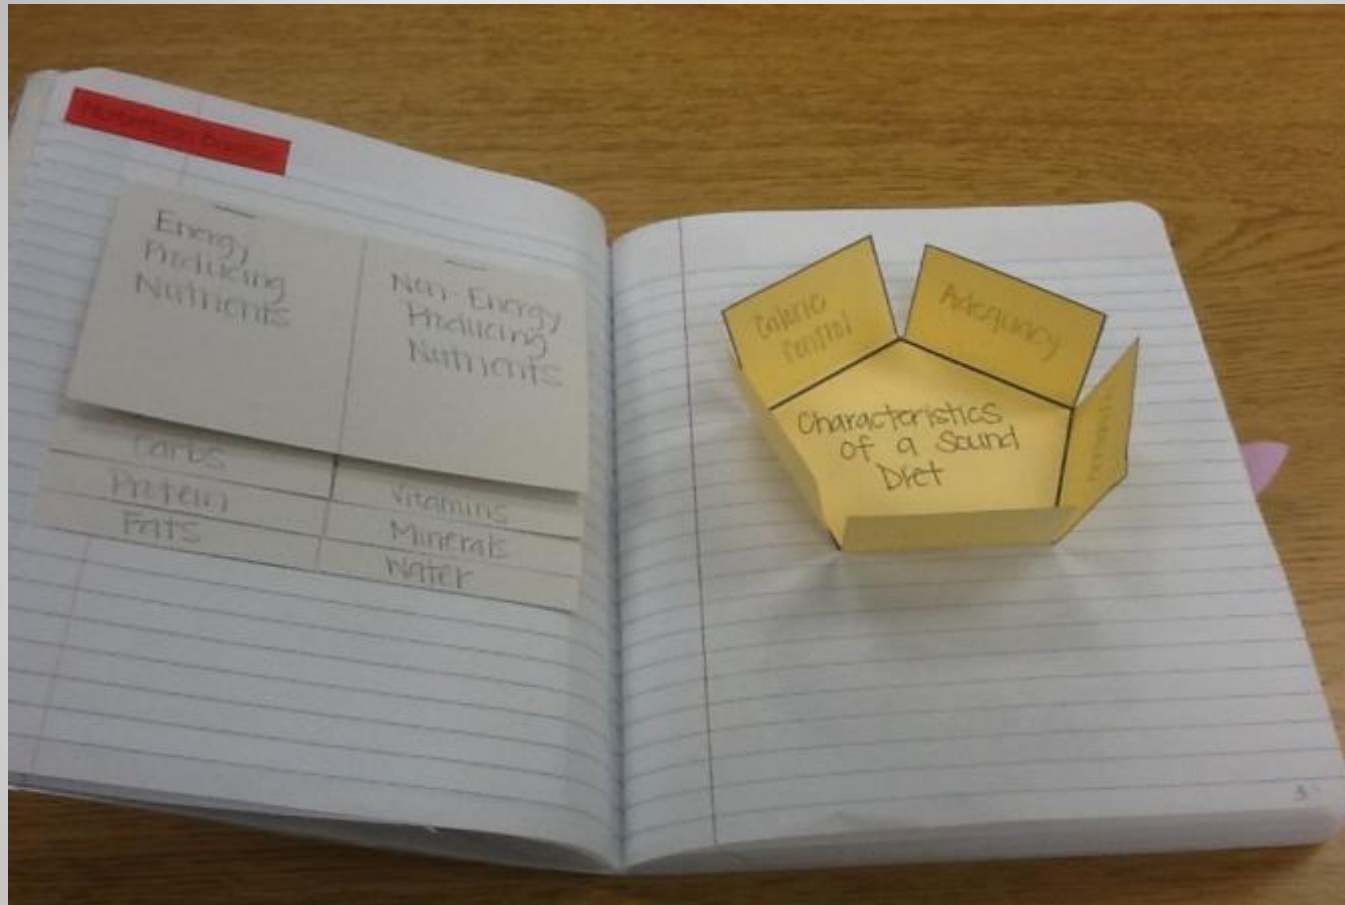 Energy
Producing
Nutrients
Non-Energy
Producing
Nutrients
Carbs
Protein
Fats
Vitamins
Minerals
Water
Calorie
Control
Adequacy
Characteristics
of a Sound
Diet